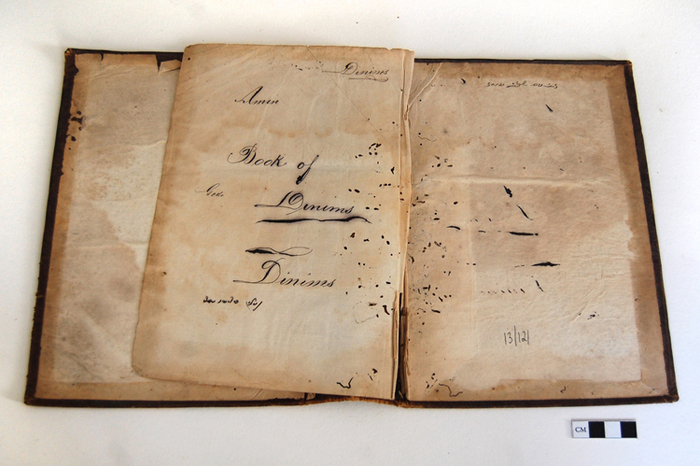 Dinims
Amen
Book of
Dinims
Dinims
13/121
CM